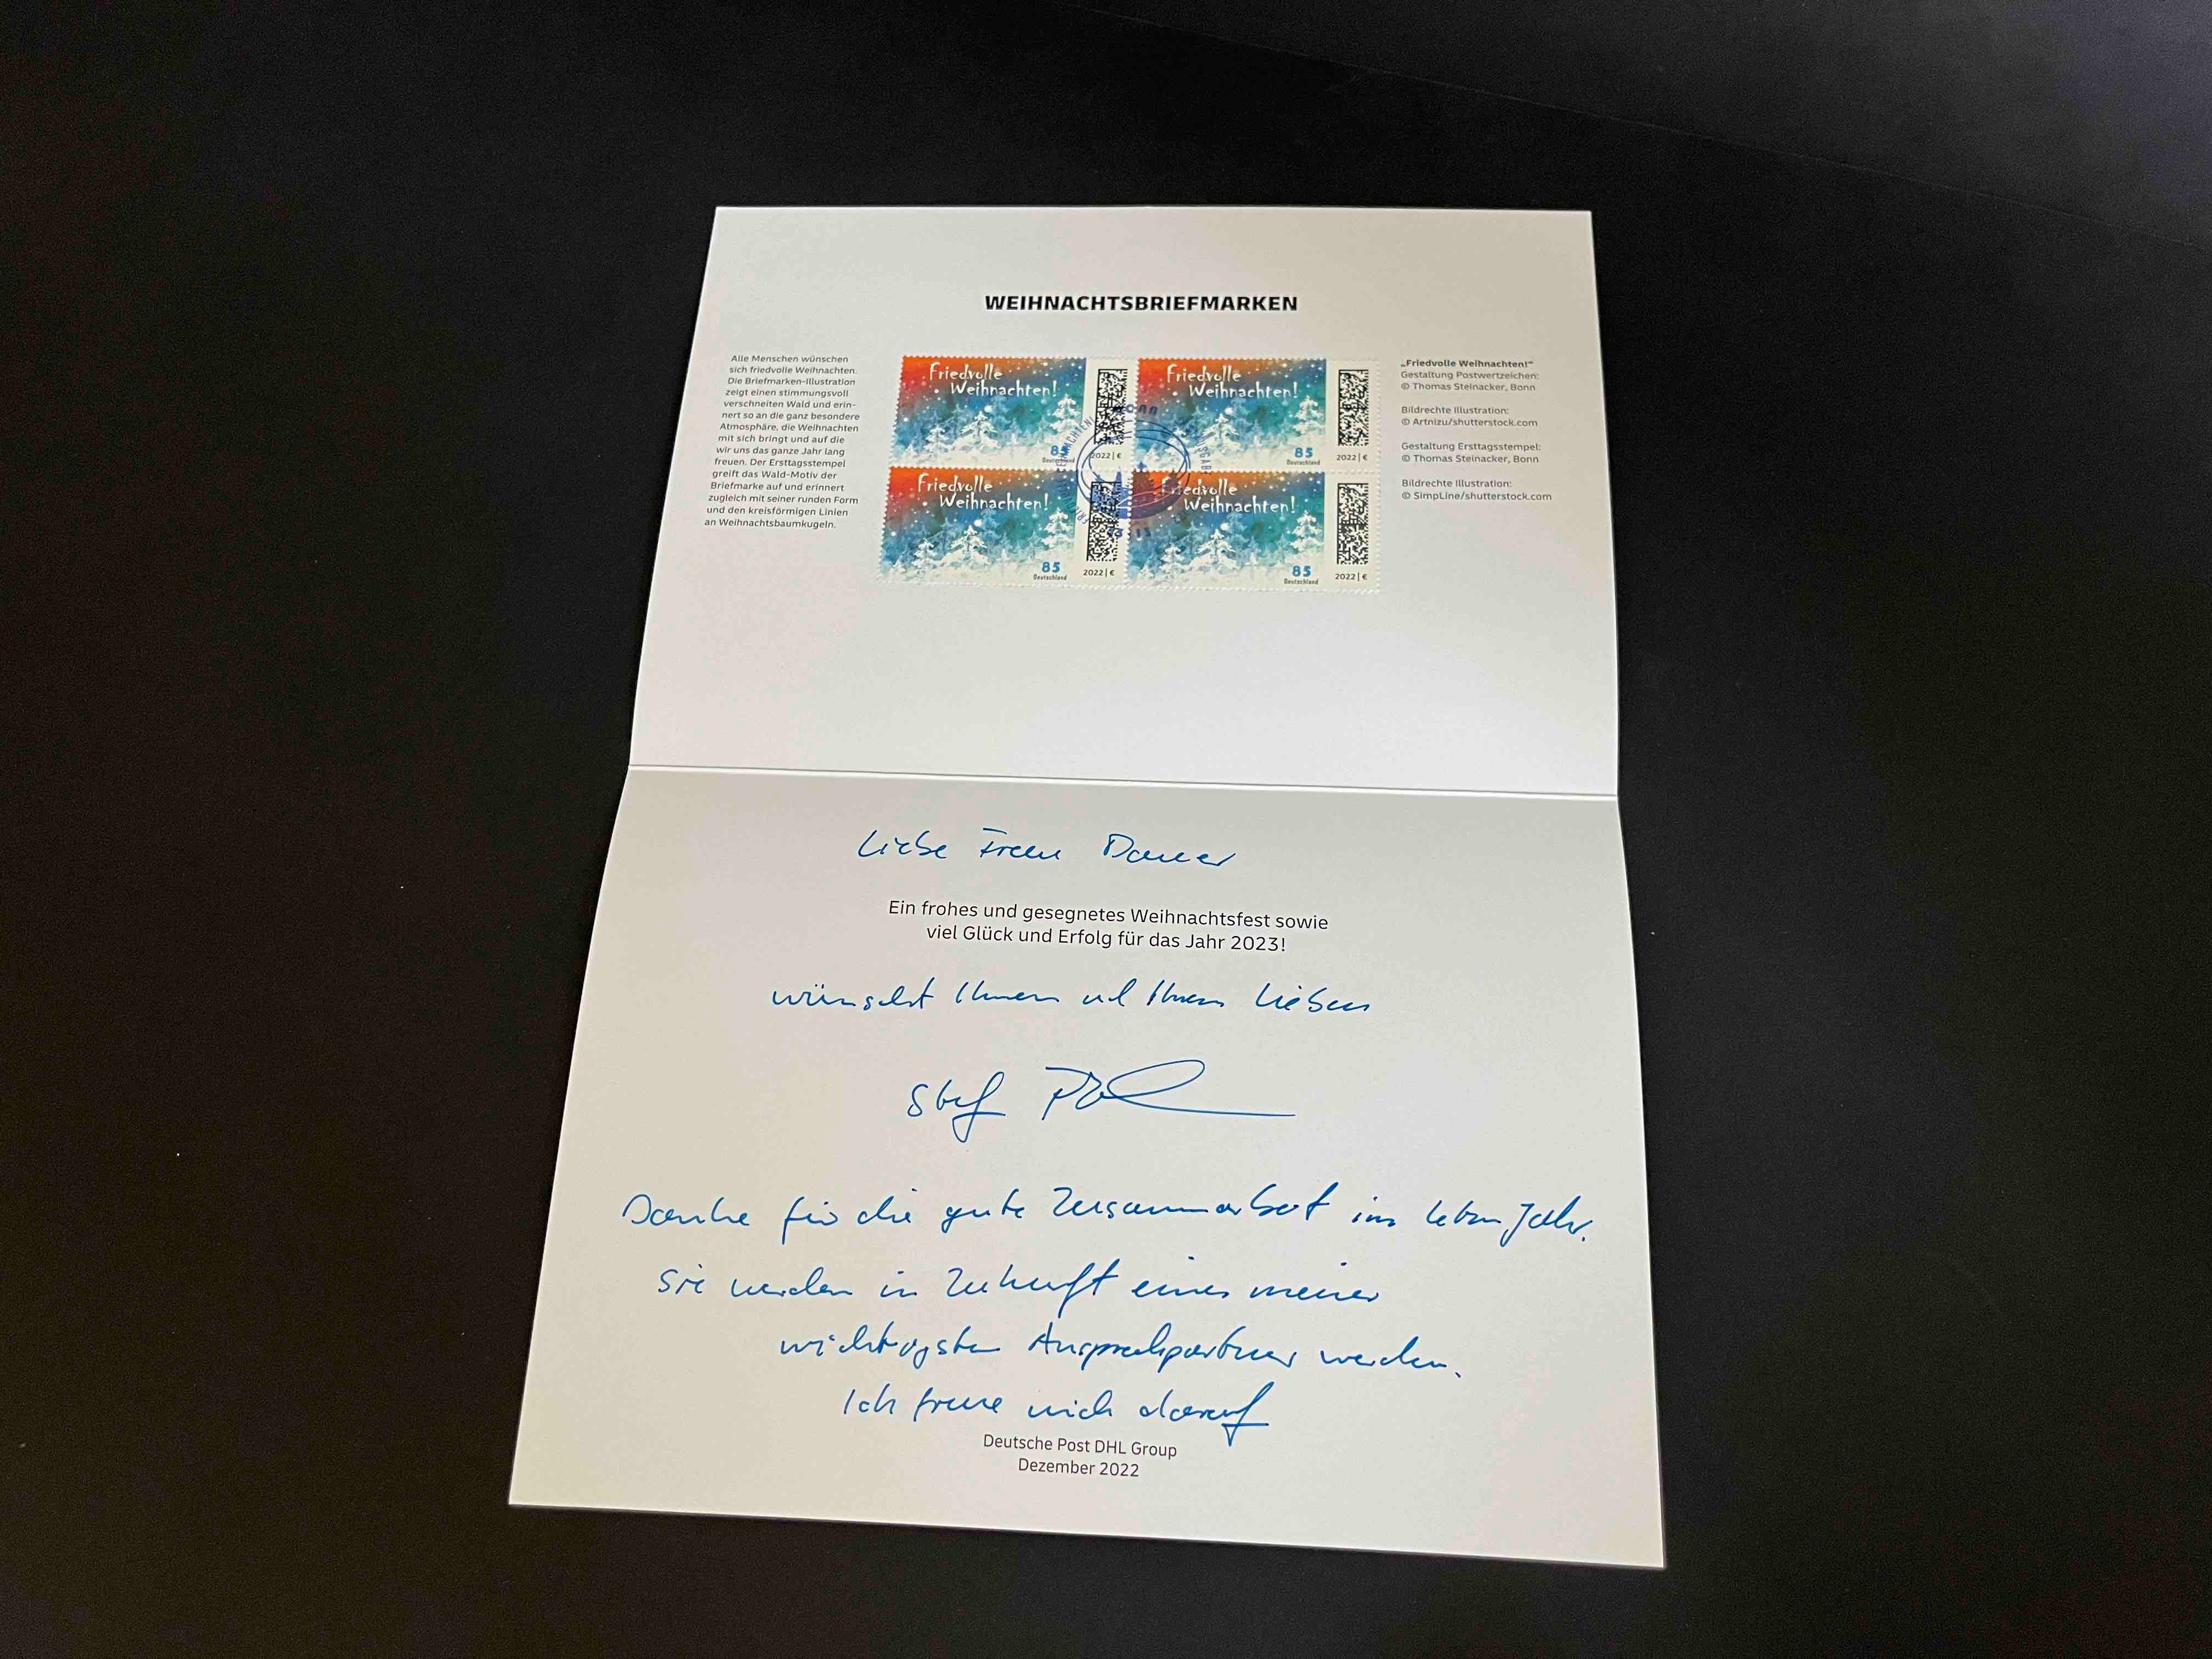 WEIHNACHTSBRIEFMARKEN
Alle Menschen wünschen
sich friedvolle Weihnachten.
Die Briefmarken-Illustration
zeigt einen stimmungsvoll
verschneiten Wald und erin-
nert so an die ganz besondere
Atmosphäre, die Weihnachten
mit sich bringt und auf die
wir uns das ganze Jahr lang
freuen. Der Ersttagsstempel
greift das Wald-Motiv der
Briefmarke auf und erinnert
zugleich mit seiner runden Form
und den kreisförmigen Linien
an Weihnachtsbaumkugeln.
Friedvolle
Weihnachten!
85
Deutschland
2022 | €
Friedvolle
Weihnachten!
85
Deutschland
2022 | €
Friedvolle
Weihnachten!
85
Deutschland
2022 | €
Friedvolle
Weihnachten!
85
Deutschland
2022 | €
„Friedvolle Weihnachten!"
Gestaltung Postwertzeichen:
© Thomas Steinacker, Bonn
Bildrechte Illustration:
© Artnizu/shutterstock.com
Gestaltung Ersttagsstempel:
© Thomas Steinacker, Bonn
Bildrechte Illustration:
© SimpLine/shutterstock.com
Liebe Frau
Ein frohes und gesegnetes Weihnachtsfest sowie
viel Glück und Erfolg für das Jahr 2023!
wünscht Ihnen und Ihren Lieben
Danke für die gute Zusammenarbeit im Jahr.
Sie werden in Zukunft einer meiner
wichtigsten Ansprechpartner werden.
Ich freue mich darauf
Deutsche Post DHL Group
Dezember 2022